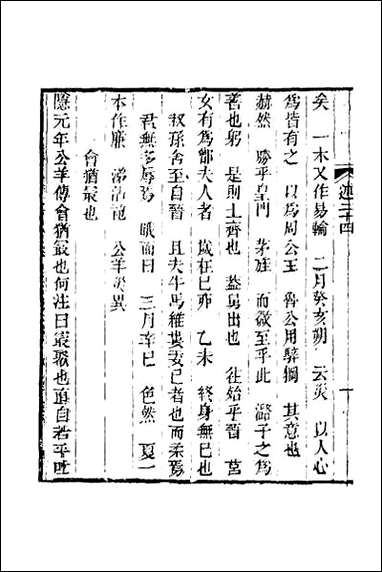 述二十四 十
矣 一本又作易輸 二月癸亥朔 云災 以人心
爲皆有之 以爲周公主 魯公用騂犅 其意也
赫然 勝乎皇門 茅旌 而微至乎此 潞子之爲
善也躬 是則土齊也 蓋舅出也 往殆乎晉 莒
女有爲鄫夫人者 歲在己卯 乙未 終身無已也
叔孫舍至自晉 且夫牛馬維婁委己者也而柔焉
君無多辱焉 眣而曰 三月辛巳 色然 夏一
本作廉 涕沾袍 公羊災異
會猶冣也
隱元年公羊傳會猶冣也何注曰冣聚也直自若平時